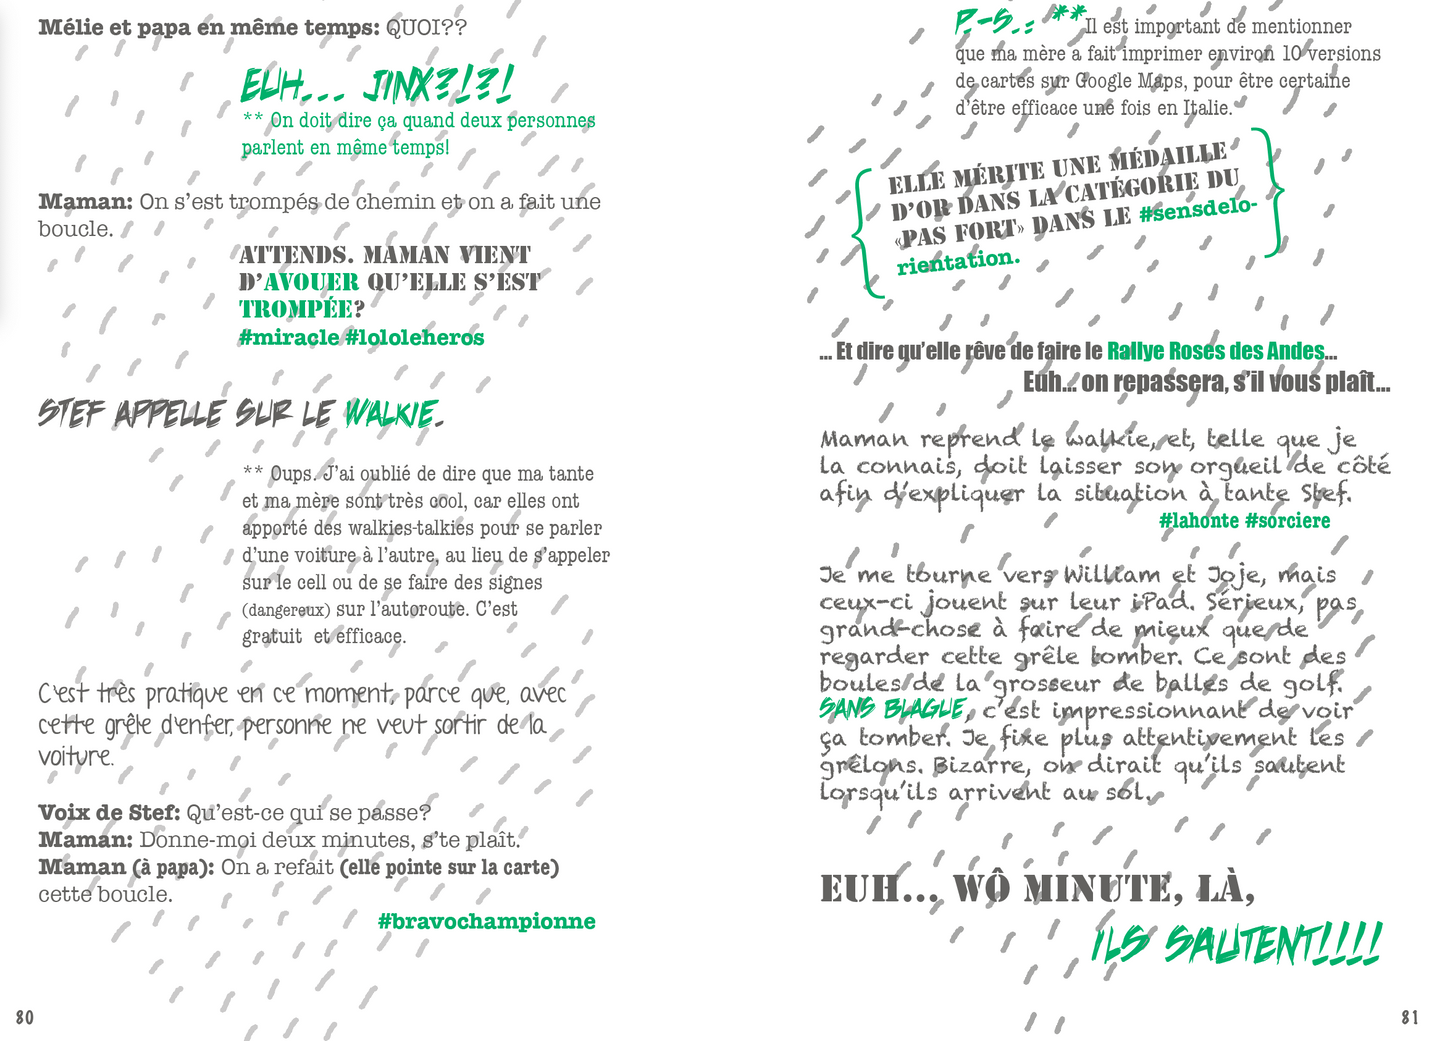 Mélie et papa en même temps: QUOI??
EUH... JINX?!?!
** On doit dire ça quand deux personnes
parlent en même temps!
Maman: On s'est trompés de chemin et on a fait une
boucle.
ATTENDS. MAMAN VIENT
D'AVOUER QU'ELLE S'EST
TROMPÉE?
#miracle #lololeheros
STEF APPELLE SUR LE WALKIE.
** Oups. J'ai oublié de dire que ma tante
et ma mère sont très cool, car elles ont
apporté des walkies-talkies pour se parler
d'une voiture à l'autre, au lieu de s'appeler
sur le cell ou de se faire des signes
(dangereux) sur l'autoroute. C'est
gratuit et efficace.
C'est très pratique en ce moment, parce que, avec
cette grêle d'enfer, personne ne veut sortir de la
voiture.
Voix de Stef: Qu'est-ce qui se passe?
Maman: Donne-moi deux minutes, s'te plaît.
Maman (à papa): On a refait (elle pointe sur la carte)
cette boucle.
#bravochampionne
80
P.-S.: ** Il est important de mentionner
que ma mère a fait imprimer environ 10 versions
de cartes sur Google Maps, pour être certaine
d'être efficace une fois en Italie.
ELLE MÉRITE UNE MÉDAILLE
D'OR DANS LA CATÉGORIE DU
«PAS FORT» DANS LE #sensdelo-
rientation.
... Et dire qu'elle rêve de faire le Rallye Roses des Andes...
Euh... on repassera, s'il vous plaît...
Maman reprend le walkie, et, telle que je
la connais, doit laisser son orgueil de côté
afin d'expliquer la situation à tante Stef.
#lahonte #sorciere
Je me tourne vers William et Joje, mais
ceux-ci jouent sur leur iPad. Sérieux, pas
grand-chose à faire de mieux que de
regarder cette grêle tomber. Ce sont des
boules de la grosseur de balles de golf.
SANS BLAGUE, c'est impressionnant de voir
ça tomber. Je fixe plus attentivement les
grêlons. Bizarre, on dirait qu'ils sautent
lorsqu'ils arrivent au sol.
EUH... WÔ MINUTE, LÀ,
ILS SAUTENT!!!!
81